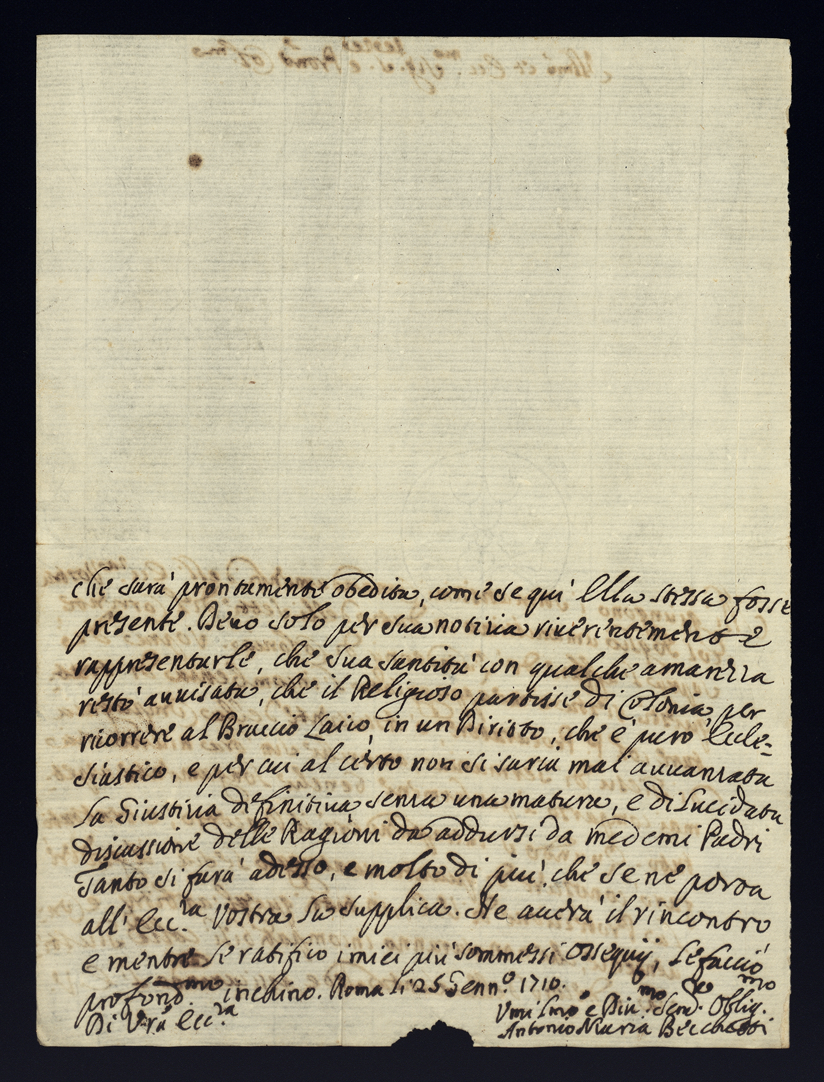 che sarà prontamente obedita, come se quì Ella stessa fosse
presente. Devo solo per sua notizia riverentemente
rappresentarle, che sua santità con qualche amarezza
restò auuisata, che il Religioso partisse di Colonia, per
ricorrere al Braccio Laico, in un Diritto, che è puro Eccle=
siastico, e per cui al certo non si saria mai auuanzata
La Giustizia definitiva senza una matura, e dilucidata
discussione delle Ragioni da addursi da medemi Padri
Tanto si farà adesso, e molto di più, che se ne porta
all' Ecc.za Vostra La supplica. Ne auerà il rincontro
e mentre Le ratifico i miei più sommessi ossequij, Le faccio
profond.mo inchino. Roma li 25 Genn.o 1710.
Di V.ra Ecc.za
Umilmo e Div.mo Serv.re Oblig.mo
Antonio Maria Becchetti